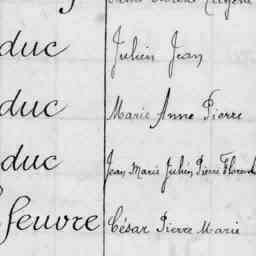 duc Julien Jean
duc Marie Anne Pierre
duc Jean Marie Julien Pierre Florent
feuvre César Pierre Marie